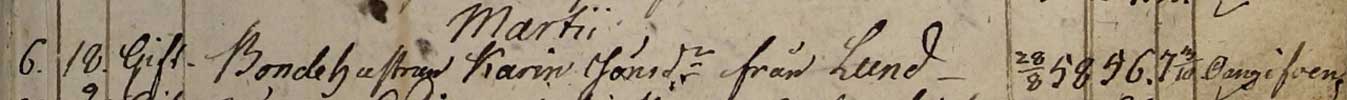 Martii
6. 18. Gift. Bondehustrun Karin Jönsdr från Lund – 28/8 58 56. 7 Oangifven